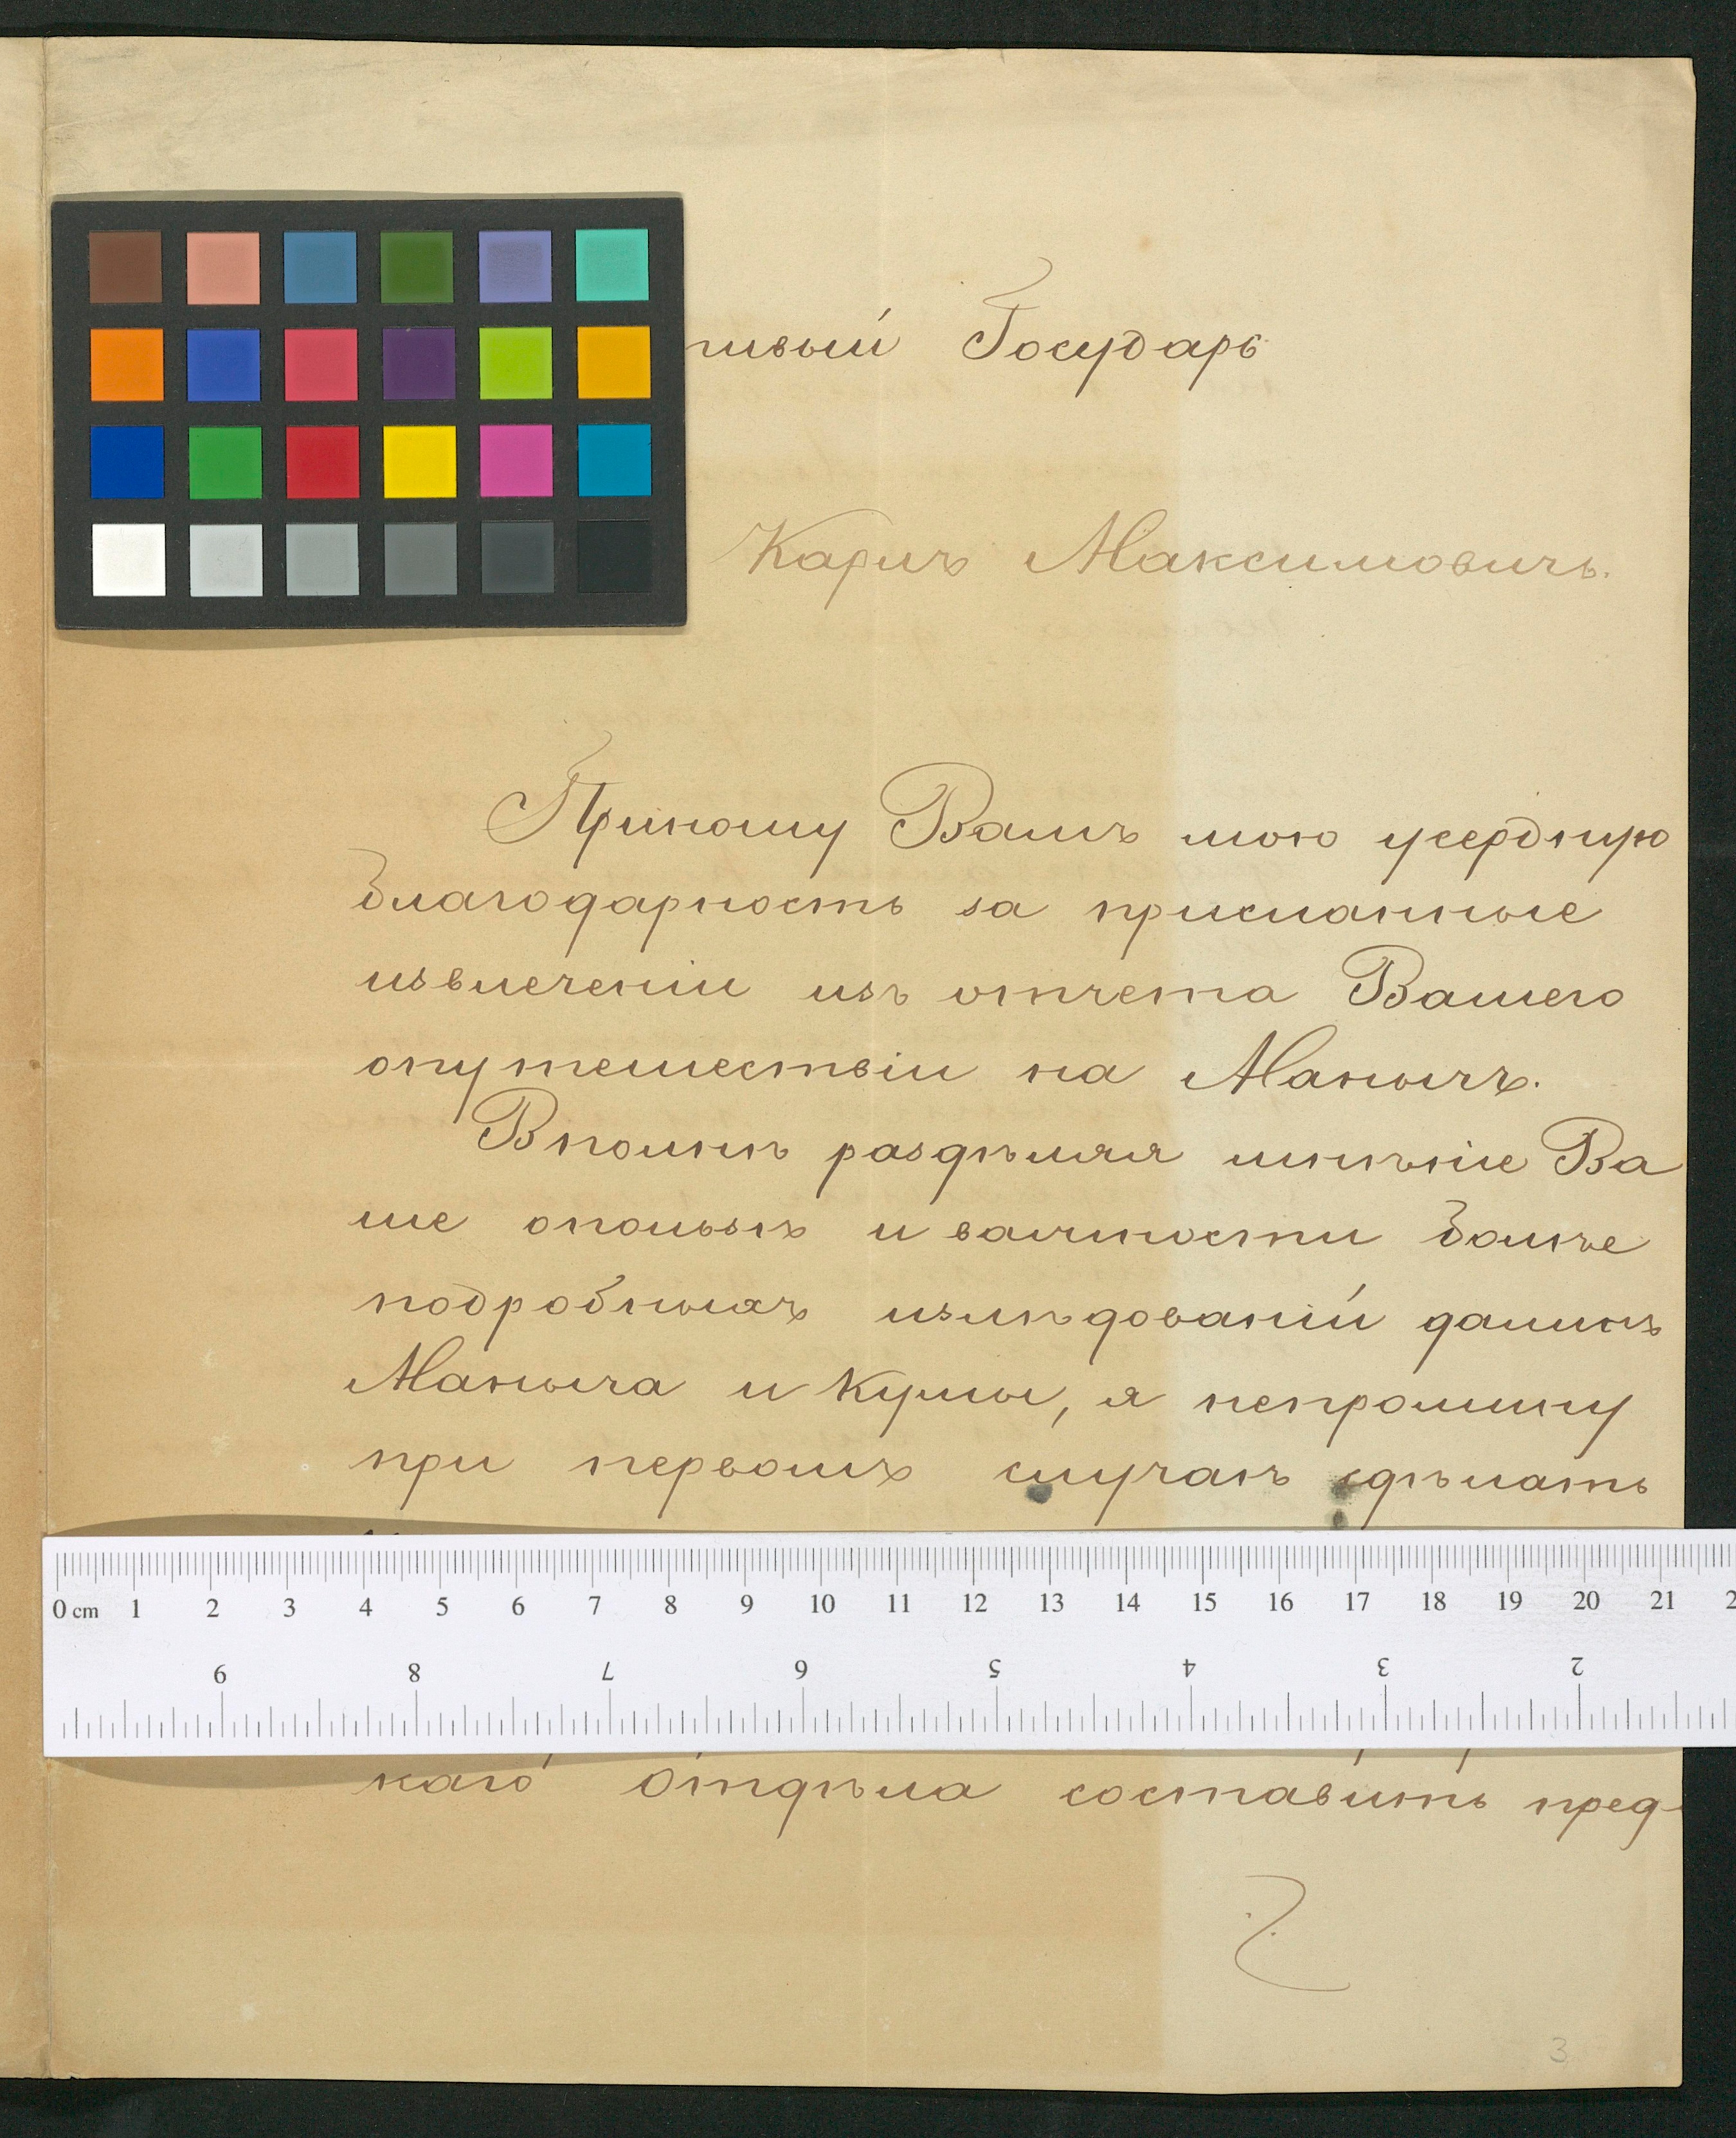 тивый Государь
Карлъ Максимовичъ.
Приношу Вамъ мою усердную
благодарность за присланные
извлеченiи изъ отчета Вашего
опутешествiи на Манычъ.
Вполнѣ раздѣляя мнѣнiе Ва
ше опользѣ и важности болѣе
подробныхъ изслѣдованiй долинъ
Маныча и Кумы, я непромину
при первомъ случаѣ сдѣлать
0 cm 1 2 3 4 5 6 7 8 9 10 11 12 13 14 15 16 17 18 19 20 21 2
9 8 7 6 5 4 3 2
каго Отдѣла составить пред-
3